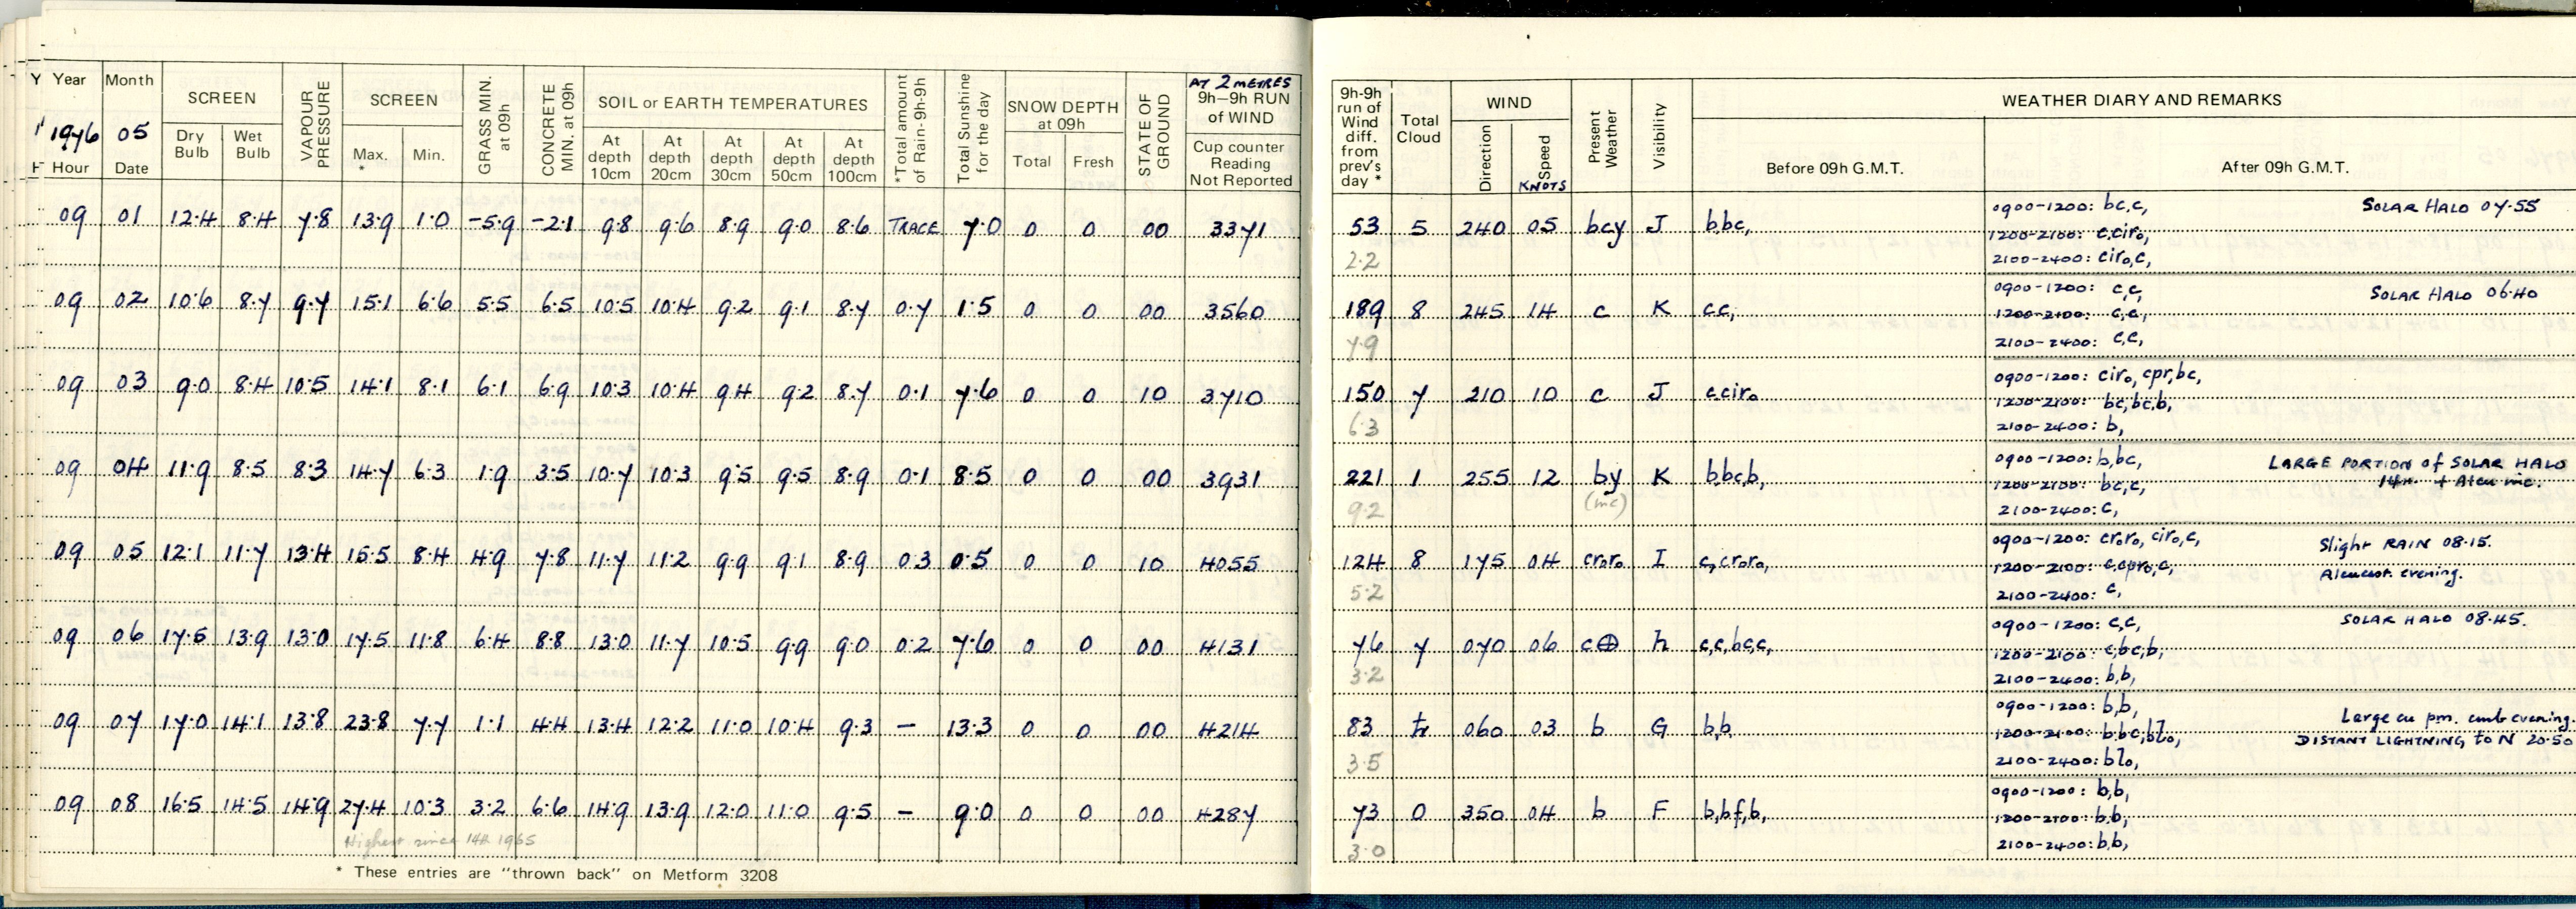 Year Month SCREEN VAPOUR PRESSURE SCREEN GRASS MIN. at 09h CONCRETE MIN. at 09h SOIL or EARTH TEMPERATURES *Total amount of Rain-9h-9h Total Sunshine for the day SNOW DEPTH at 09h STATE OF GROUND AT 2 METRES 9h–9h RUN of WIND
1976 05 Dry Bulb Wet Bulb Max. * Min. At depth 10cm At depth 20cm At depth 30cm At depth 50cm At depth 100cm Total Fresh Cup counter Reading Not Reported
Hour Date
09 01 12.4 8.4 7.8 13.9 1.0 -5.9 -2.1 9.8 9.6 8.9 9.0 8.6 TRACE 7.0 0 0 00 3371
09 02 10.6 8.7 9.7 15.1 6.6 5.5 6.5 10.5 10.4 9.2 9.1 8.7 0.7 1.5 0 0 00 3560
09 03 9.0 8.4 10.5 14.1 8.1 6.1 6.9 10.3 10.4 9.4 9.2 8.7 0.1 7.6 0 0 10 3710
09 04 11.9 8.5 8.3 14.7 6.3 1.9 3.5 10.7 10.3 9.5 9.5 8.9 0.1 8.5 0 0 00 3931
09 05 12.1 11.7 13.4 15.5 8.4 4.9 7.8 11.7 11.2 9.9 9.1 8.9 0.3 0.5 0 0 10 4055
09 06 17.5 13.9 13.0 17.5 11.8 6.4 8.8 13.0 11.7 10.5 9.9 9.0 0.2 7.6 0 0 00 4131
09 07 17.0 14.1 13.8 23.8 7.7 1.1 4.4 13.4 12.2 11.0 10.4 9.3 – 13.3 0 0 00 4214
09 08 16.5 14.5 14.9 27.4 10.3 3.2 6.6 14.9 13.9 12.0 11.0 9.5 – 9.0 0 0 00 4287
Highest since 14th 1965
* These entries are "thrown back" on Metform 3208
9h-9h run of Wind diff. from prev's day * Total Cloud WIND Present Weather Visibility WEATHER DIARY AND REMARKS
Direction Speed KNOTS Before 09h G.M.T. After 09h G.M.T.
53 5 240 05 bcy J b,bc, 0900-1200: bc,c, SOLAR HALO 07.55
1200-2100: c,ciro,
2.2 2100-2400: ciro,c,
189 8 245 14 c K c,c, 0900-1200: c,c, SOLAR HALO 06.40
1200-2100: c,c,
7.9 2100-2400: c,c,
150 7 210 10 c J c,ciro 0900-1200: ciro, cpr,bc,
1200-2100: bc,bc,b,
6.3 2100-2400: b,
221 1 255 12 by K b,bc,b, 0900-1200: b,bc, LARGE PORTION of SOLAR HALO
1200-2100: bc,c, 14h + Alcu mc.
9.2 (mc) 2100-2400: c,
124 8 175 04 croro I c,croro, 0900-1200: croro, ciro,c, Slight RAIN 08.15.
1200-2100: c,cpro,c, Alcucast. evening.
5.2 2100-2400: c,
76 7 070 06 c⊕ h c,c,bc,c, 0900-1200: c,c, SOLAR HALO 08.45.
1200-2100: c,bc,b,
3.2 2100-2400: b,b,
83 tr 060 03 b G b,b, 0900-1200: b,b, Large cu pm. cumb evening.
1200-2100: b,bc,blo, DISTANT LIGHTNING to N 20.50
3.5 2100-2400: blo,
73 0 350 04 b F b,bf,b, 0900-1200: b,b,
1200-2100: b,b,
3.0 2100-2400: b,b,